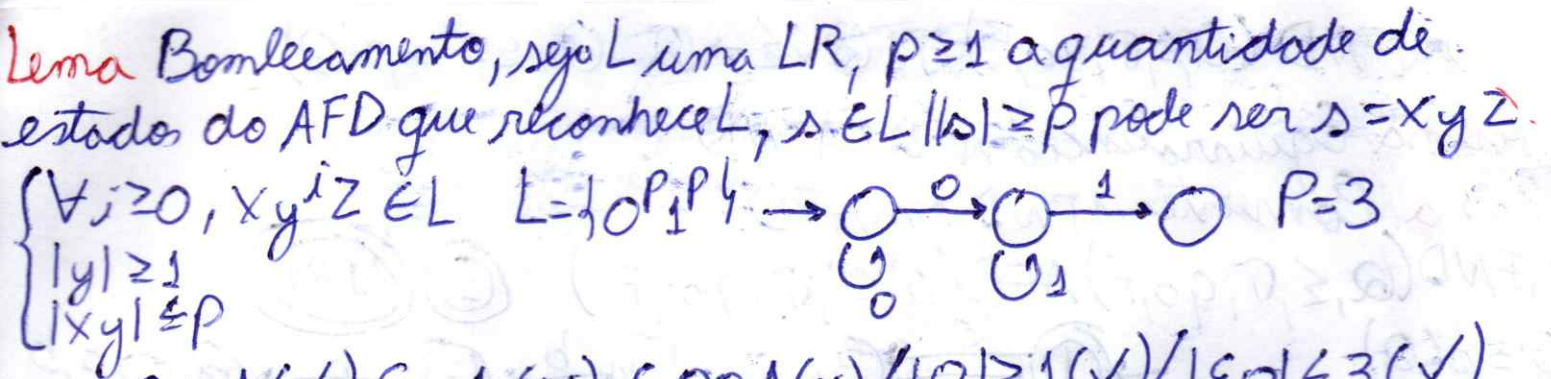 Lema Bombeamento, seja L uma LR, p≥1 a quantidade de
estados do AFD que reconhece L, s ∈ L ||s| ≥ p pode ser s = xyz.
{ ∀i≥0, xyⁱz ∈ L L={0ᴾ1ᴾ} → 0 1 P=3
|y| ≥ 1 0 1
|xy| ≤ p